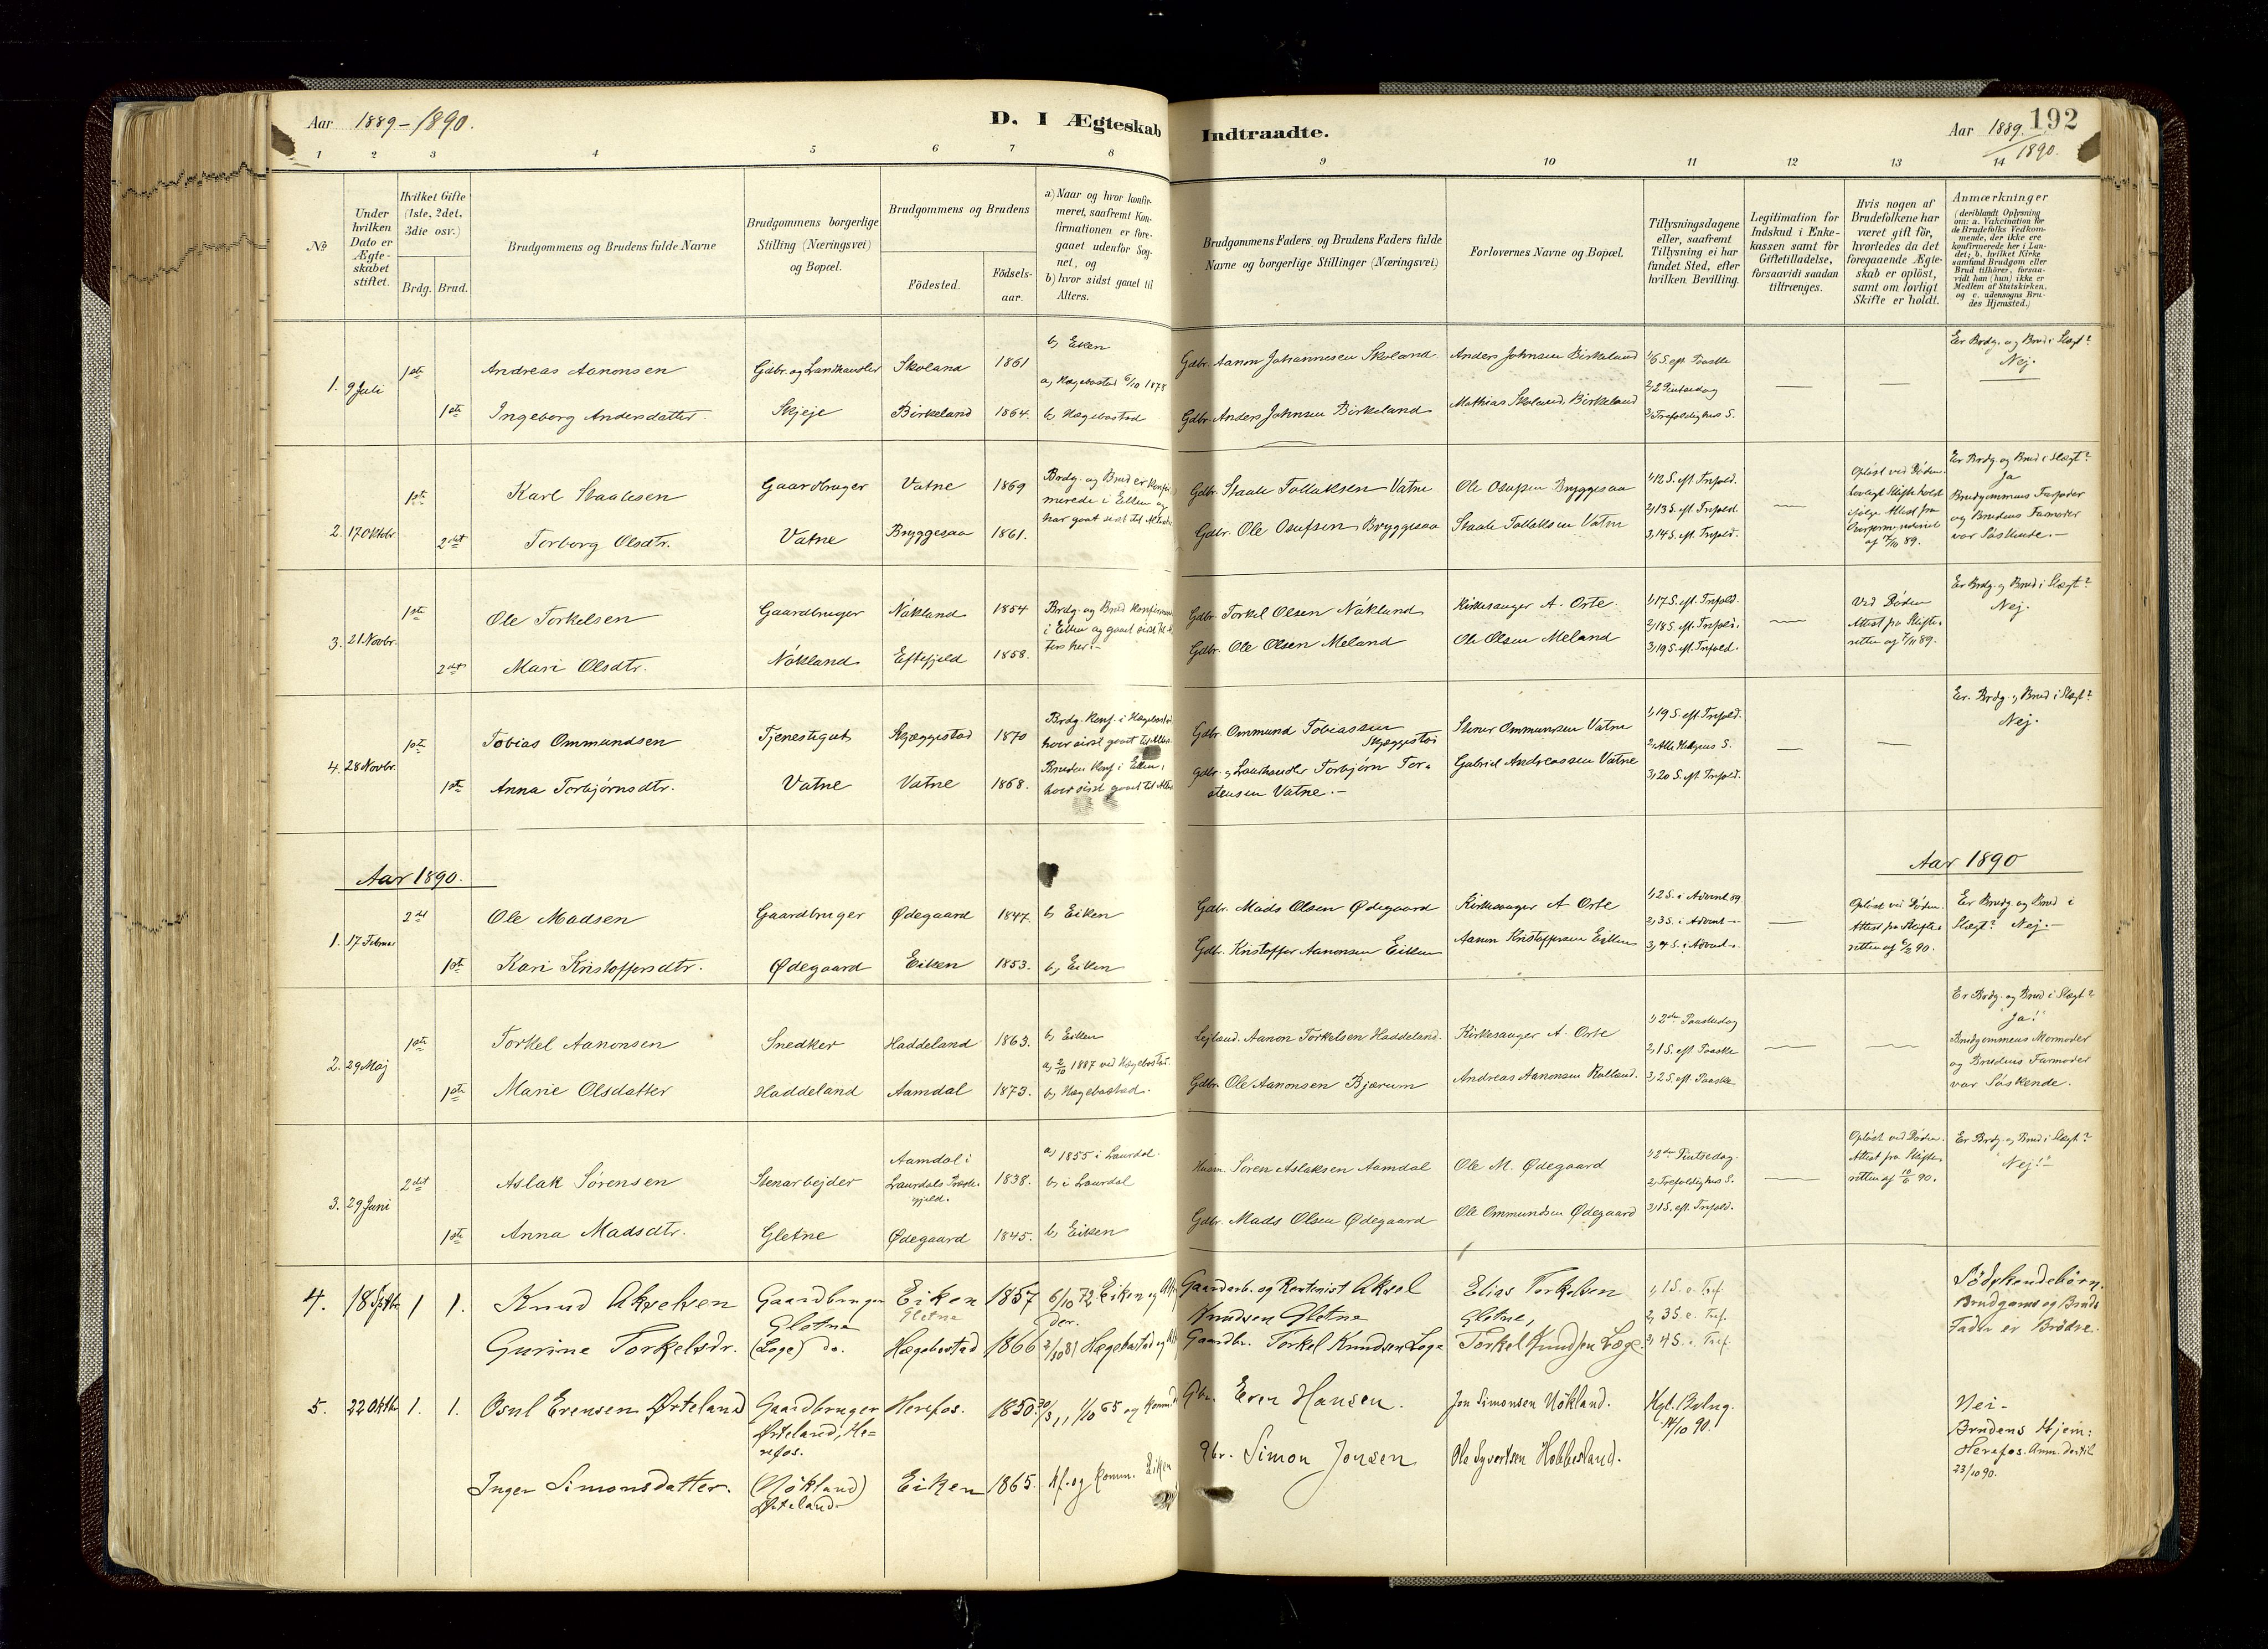 Aar 1889-1890.
D. I Ægteskab Indtraadte.
Aar 1889. 192
1890.
1 2 3 4 5 6 7 8 9 10 11 12 13 14
№
Under hvilken Dato er Ægteskabet stiftet.
Hvilket Gifte (1ste, 2det, 3die osv.)
Brdg. Brud.
Brudgommens og Brudens fulde Navne
Brudgommens borgerlige Stilling (Næringsvei) og Bopæl.
Brudgommens og Brudens
Fødested.
Fødselsaar.
a) Naar og hvor konfirmeret, saafremt Konfirmationen er foregaaet udenfor Sognet, og
b) hvor sidst gaaet til Alters.
Brudgommens Faders, og Brudens Faders fulde Navne og borgerlige Stillinger (Næringsvei)
Forlovernes Navne og Bopæl.
Tillysningsdagene eller, saafremt Tillysning ei har fundet Sted, efter hvilken Bevilling.
Legitimation for Indskud i Enkekassen samt for Giftetilladelse, forsaavidt saadan tiltrænges.
Hvis nogen af Brudefolkene har været gift før, hvorledes da det foregaaende Ægteskab er opløst, samt om lovligt Skifte er holdt.
Anmærkninger
(deriblandt Oplysning om: a. Vakcination for de Brudefolks Vedkommende, der ikke ere konfirmerede her i Landet; b. hvilket Kirkesamfund Brudgom eller Brud tilhører, forsaavidt han (hun) ikke er Medlem af Statskirken, og c. udensogns Brudes Hjemsted.)
1. 9 Juli 1ste Andreas Aanonsen Gdbr. og Landhandler Skoland 1861 b, Eken Gdbr. Aanon Johannesen Skoland Anders Johnsen Birkeland 1, 6 S. eft. Paaske Er Brdg. og Brud i Slægt? Nej.
a, Hægebostad 6/10 1878 2, 2 Pintsedag
1ste Ingeborg Andersdatter. Skjeje Birkeland 1864. b, Hægebostad Gdbr. Anders Johnsen Birkeland Mathias Skoland, Birkeland 3, Trefoldighus S.
2. 17 Oktobr 1ste Karl Staalesen Gaardbruger Vatne 1869 Brdg. og Brud er Konfirmerede i Eiken og har gaat sidst til Alters Gdbr. Staale Tollaksen Vatne Ole Osufsen Bryggesaa 1, 12 S. eft. Trefold. Opløst ved Døden. Lovligt Skifte holdt ifølge Attest fra af 7/10 89. Er Brdg. og Brud i Slægt? Ja
2, 13 S. eft. Trefold Brudgommens Farfader og Brudens Farmoder var Søskende.-
2det Torborg Olsdtr. Vatne Bryggesaa 1861. Gdbr. Ole Osufsen Bryggesaa Staale Tollaksen Vatne 3, 14 S. eft. Trefold.
3. 21 Novbr. 1ste Ole Torkelsen Gaardbruger Nökland 1854 Brdg. og Brud Konfirmeret i Eiken og gaaet sidst til Alters her.- Gdbr. Torkel Olsen Nökland Kirkesanger A. Orte. 1, 17 S. eft. Trefold. Ved Døden Attest fra Skifteretten af 7/11 89. Er Brdg. og Brud i Slægt? Nej.
2, 18 S. eft. Trefold.
2det Mari Olsdtr. Nökland Eftefjeld 1858. Gdbr. Ole Olsen Meland Ole Olsen Meland 3, 19 S. eft. Trefold.
4. 28 Novbr. 1ste Tobias Ommundsen Tjenestegut Skjæggestad 1870 Brdg. Konf. i Hægebostad hvor sidst gaaet til Alters Gdbr. Ommund Tobiassen Skjæggestad Stener Ommundsen Vatne 1, 19 S. eft. Trefold. Er. Brdg. og Brud i Slægt? Nej.
2, Alle Helgens S.
1ste Anna Torbjørnsdtr. Vatne Vatne 1868. Bruden Konf. i Eiken, hvor sidst gaaet til Alters Gdbr. og Landhandler Torbjørn Torstensen Vatne.- Gabriel Andreassen Vatne 3, 20 S. eft. Trefold.
Aar 1890. Aar 1890
1. 17 Februar 2det Ole Madsen Gaardbruger Ødegaard 1847. b, Eiken Gdbr. Mads Olsen Ødegaard Kirkesanger A Orte 1, 2 S. i Advent 89 Opløst ved Døden. Attest fra Skifteretten af 6/2 90. Er Brdg. og Brud i Slægt? Nej.-
2, 3 S. i Advent
1ste Kari Kristoffersdtr. Ødegaard Eiken 1853. b, Eiken Gdbr. Kristoffer Aanonsen Eiken Aanon Kristoffersen Eiken 3, 4 S. i Advent
2. 29 Maj 1ste Torkel Aanonsen Snedker Haddeland 1863. b, Eiken Lejland. Aanon Torkelsen Haddeland. Kirkesanger A. Orte 1, 2den Paaskedag Er Brdg. og Brud i Slægt? Ja!
a, 2/10 1887 ved Hægebostad. 2, 1 S. eft. Paaske Brudgommens Mormoder og Brudens Farmoder var Søskende.
1ste Marie Olsdatter Haddeland Aamdal 1873. b, Hægebostad. Gdbr. Ole Aanonsen Bjærum Andreas Aanonsen Rolland. 3, 2 S. eft. Paaske
3. 29 Juni 2det Aslak Sørensen Stenarbejder Aamdal i Laurdals Præstegjeld. 1838. a, 1855 i Laurdal. b, i Laurdal Husm. Søren Aslaksen Aamdal Ole M. Ødegaard 1, 2den Pintsedag. Opløst ved Døden. Attest fra Skifteretten af 10/6 90. Er Brdg. og Brud i Slægt? Nej!-
2, Trefoldighus S.
1ste Anna Madsdtr. Gletne Ødegaard 1845. b, Eiken Gdbr. Mads Olsen Ødegaard Ole Ommundsen Ødegaard 3, 1 S. eft. Trefold.
4. 18 Septbr 1 1. Knud Akselsen Gaardbruger Gletne Eiken Gletne 1857 6/10 72 Eiken og Gaardarb. og Aksel Knudsen Gletne Elias Torkelsen Gletne, 1, 1 S. e. Tref. Södskendebörn. Brudgoms og Bruds Fader er Brödre.
2, 3 S. e. Tref.
Gurine Torkelsdr. (Loge) do. Hægebostad 1866 2/10 81 Hægebostad og Gaardbr. Torkel Knudsen Loge Torkel Knudsen Loge. 3, 4 S. e. Tref.
5. 22 Oktbr 1. 1. Osul Erensen Ørteland Gaardbruger Ørteland, Herefos. Herefos. 1850. 1/10 65 og Komm. Gbr. Even Hansen. Jon Simonsen Nökland. Kgl. Bevlng. 14/10 90. Nei-
Brudens Hjem: Herefos. Anm. dertil 23/10 90.
Inger Simonsdatter. (Nökland) Ørteland Eiken 1865. Kf. og Komm. Eiken Gbr. Simon Jonsen Ole Syvertsen Hobbesland.